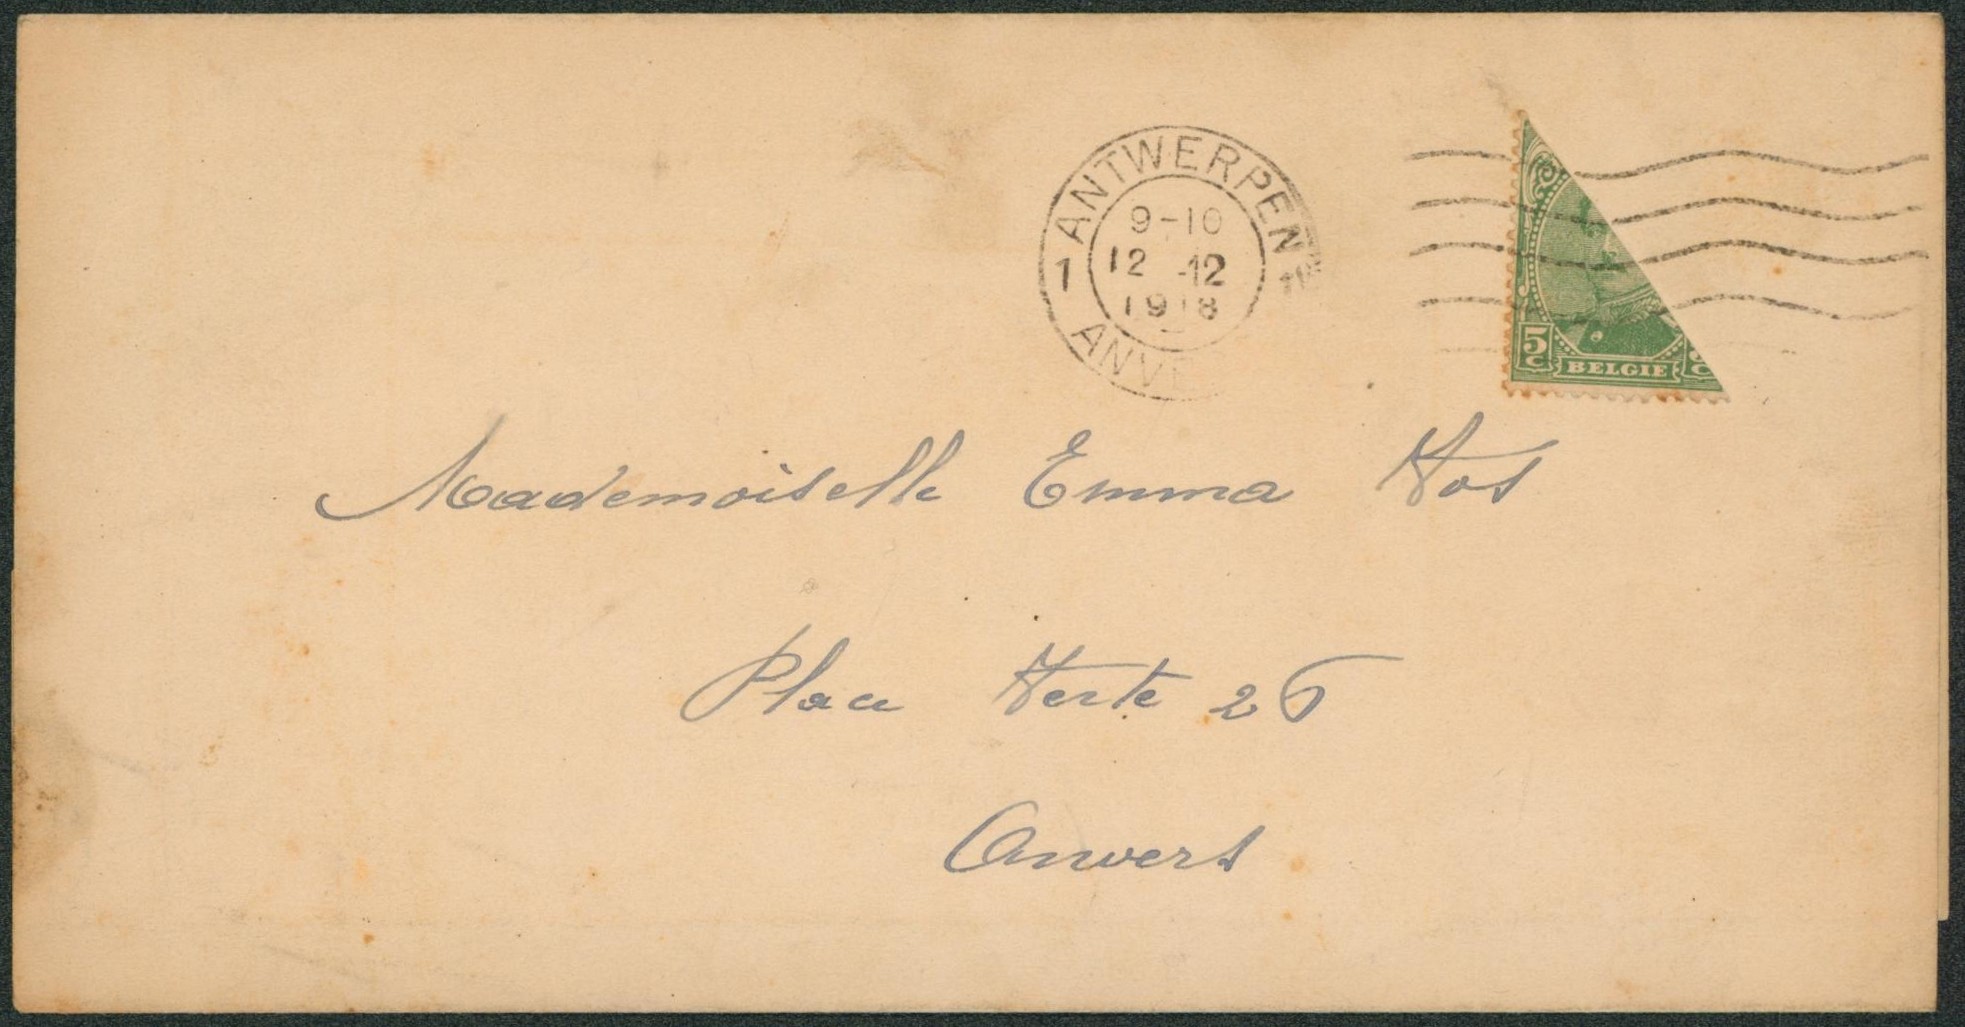 ANTWERPEN
9-10
1 12 -12 1
1918
ANVE
5 C BELGIE 5 C
Mademoiselle Emma Vos
Place Verte 26
Anvers